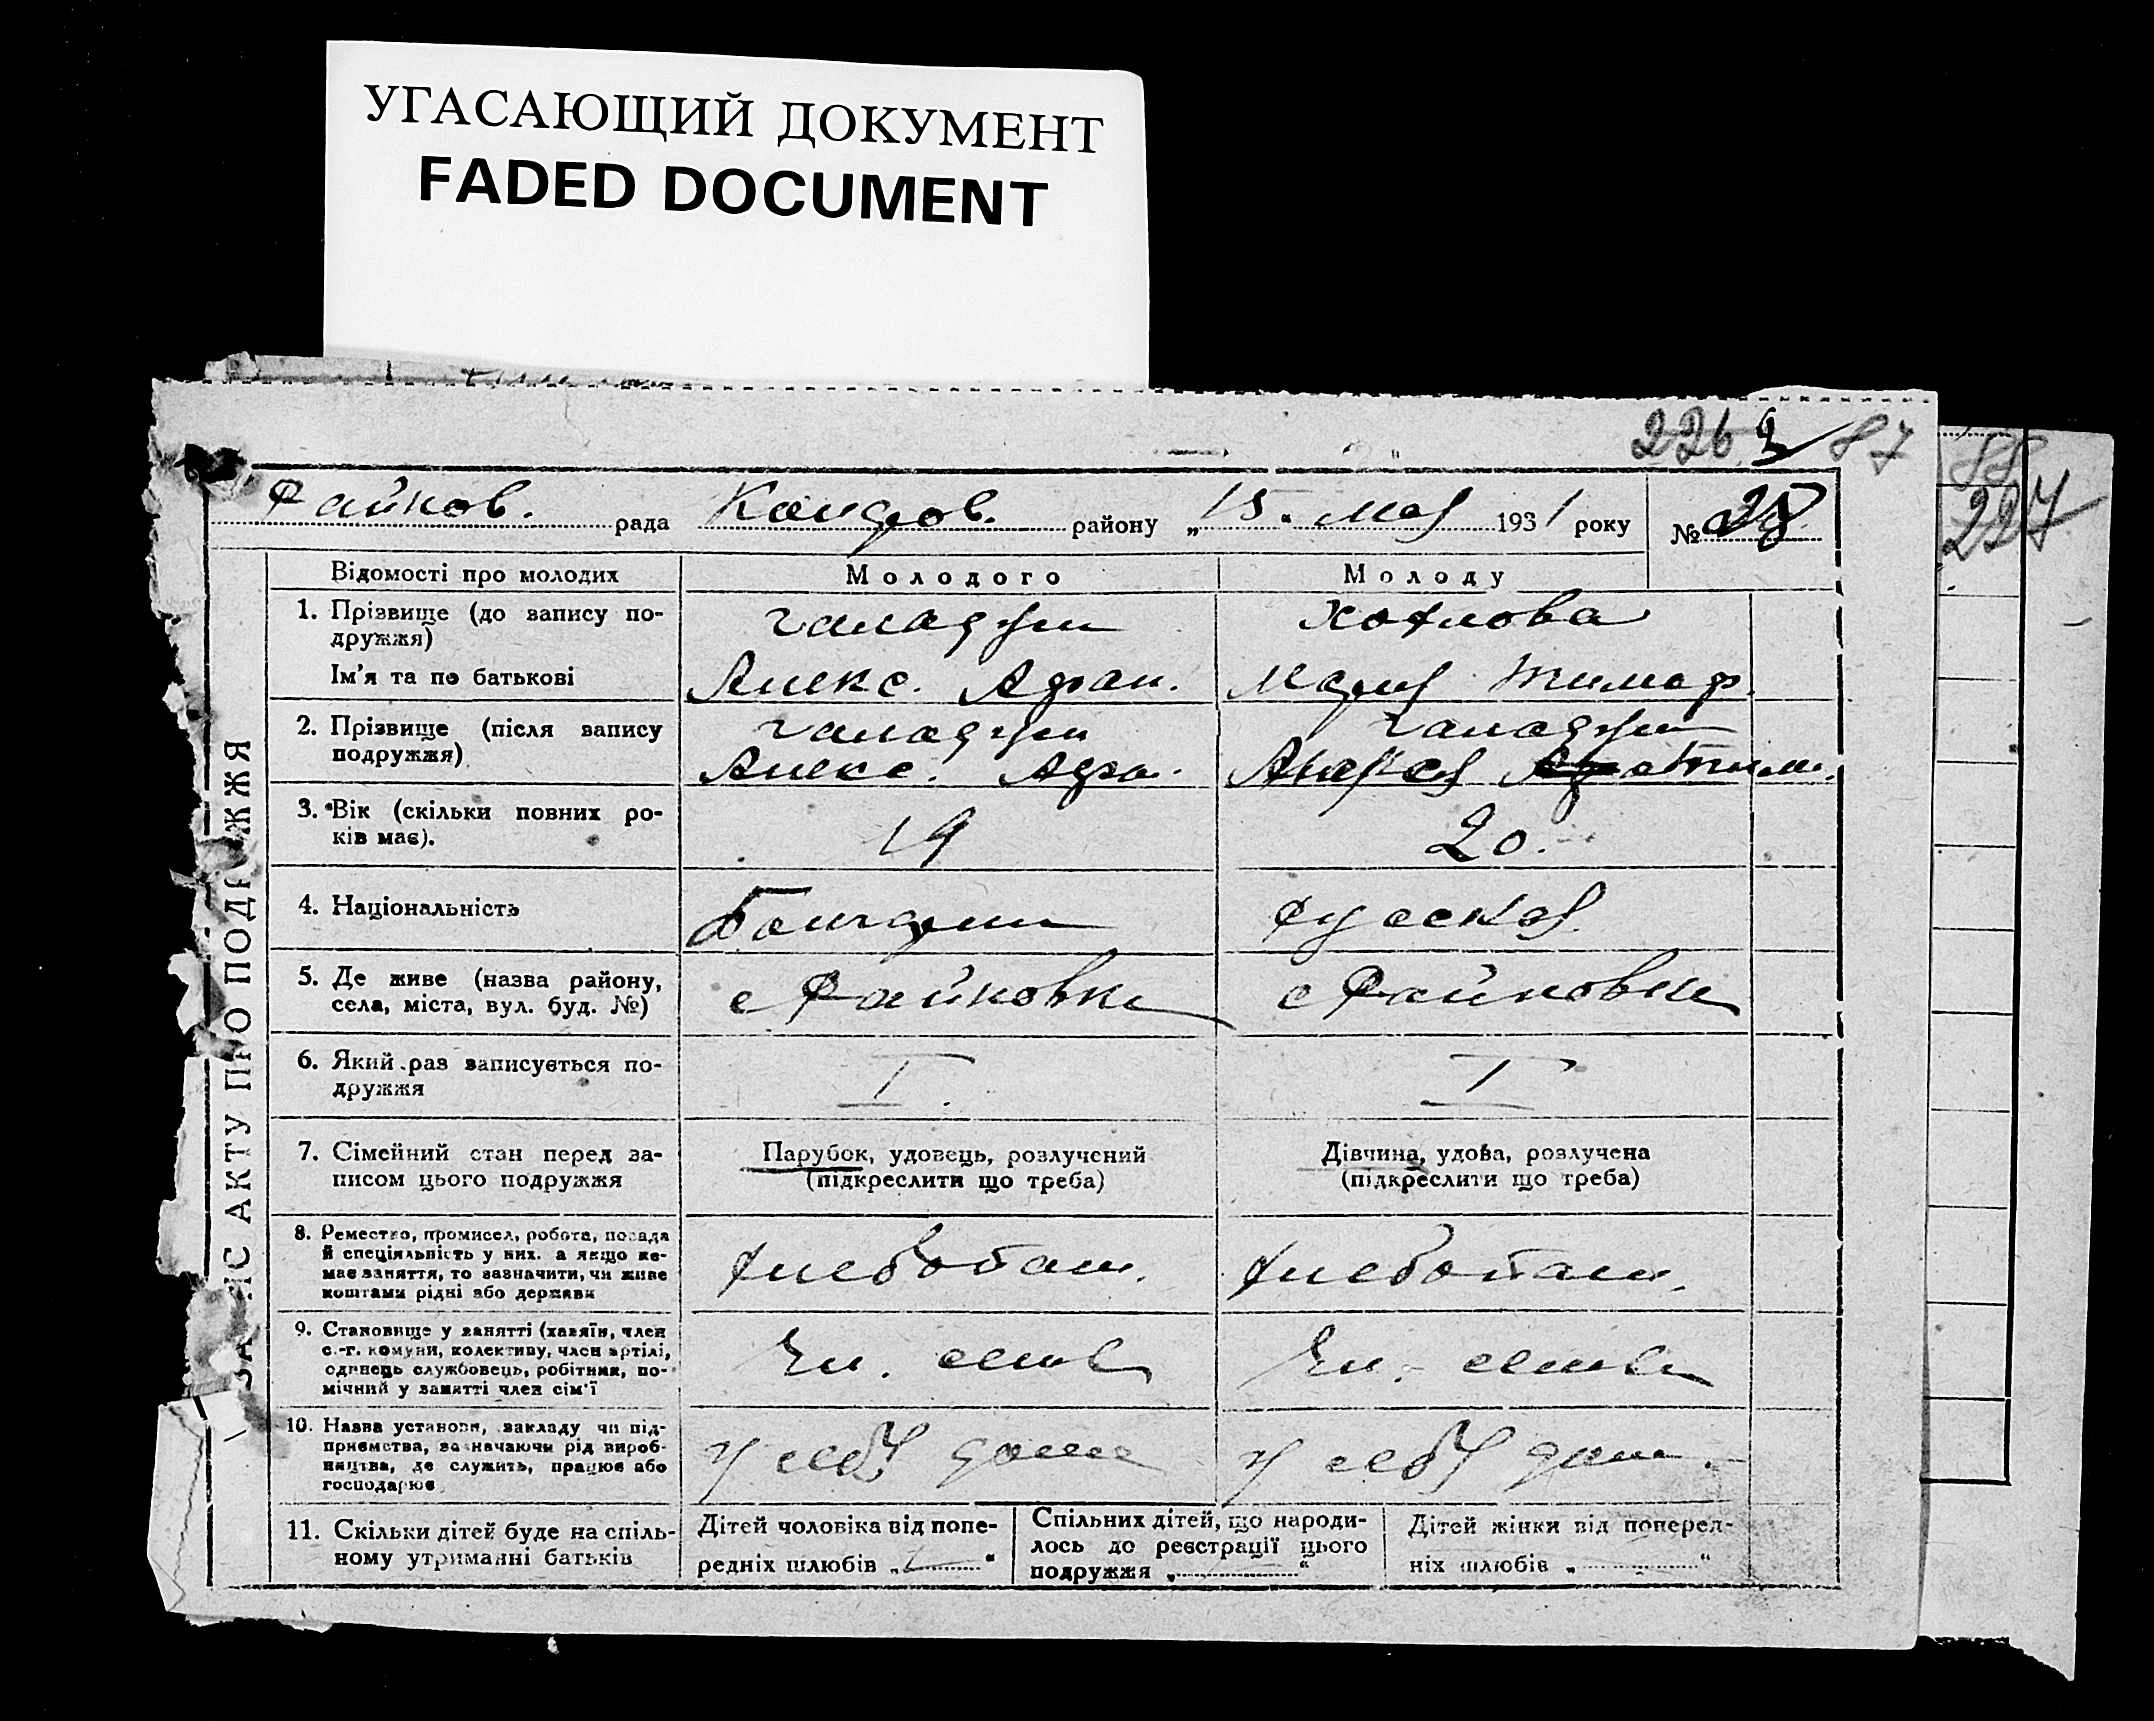 УГАСАЮЩИЙ ДОКУМЕНТ
FADED DOCUMENT
226 87
88
227
Райнов. рада Коларов. району „15“ мая 1931 року № 28
Відомості про молодих Молодого Молоду
1. Прізвище (до запису по-
дружжя)
Галаджи Котлова
Ім'я та по батькові Алекс. Афан. Мария Тимоф.
2. Прізвище (після запису
подружжя)
Галаджи Галаджи
Алекс. Афа. Тим.
3. Вік (скільки повних ро-
ків має).
19 20.
4. Національність Болгарин русская
5. Де живе (назва району,
села, міста, вул. буд. №)
с Райновка с Райновка
6. Який раз записується по-
дружжя
I. I
7. Сімейний стан перед за-
писом цього подружжя
Парубок, удовець, розлучений
(підкреслити що треба)
Дівчина, удова, розлучена
(підкреслити що треба)
8. Ремество, промисел, робота, посада
й спеціяльність у них. а якщо не-
має заняття, то зазначити, чи живе
коштами рідні або держави
хлебопаш. хлебопаш.
9. Становище у занятті (хазяїн, член
с.-г. комуни, колективу, член артілі,
одинець службовець, робітник, по-
мічний у занятті член сім'ї
Чл. семьи Чл. семьи
10. Назва установи, закладу чи під-
приємства, зазначаючи рід вироб-
ництва, де служить, працює або
господарює
у себя дома у себя дом.
11. Скільки дітей буде на спіль-
ному утриманні батьків
Дітей чоловіка від попе-
редніх шлюбів „ “
Спільних дітей, що народи-
лось до реєстрації цього
подружжя „ “
Дітей жінки від поперед-
ніх шлюбів „ “
ЗАПИС АКТУ ПРО ПОДРУЖЖЯ